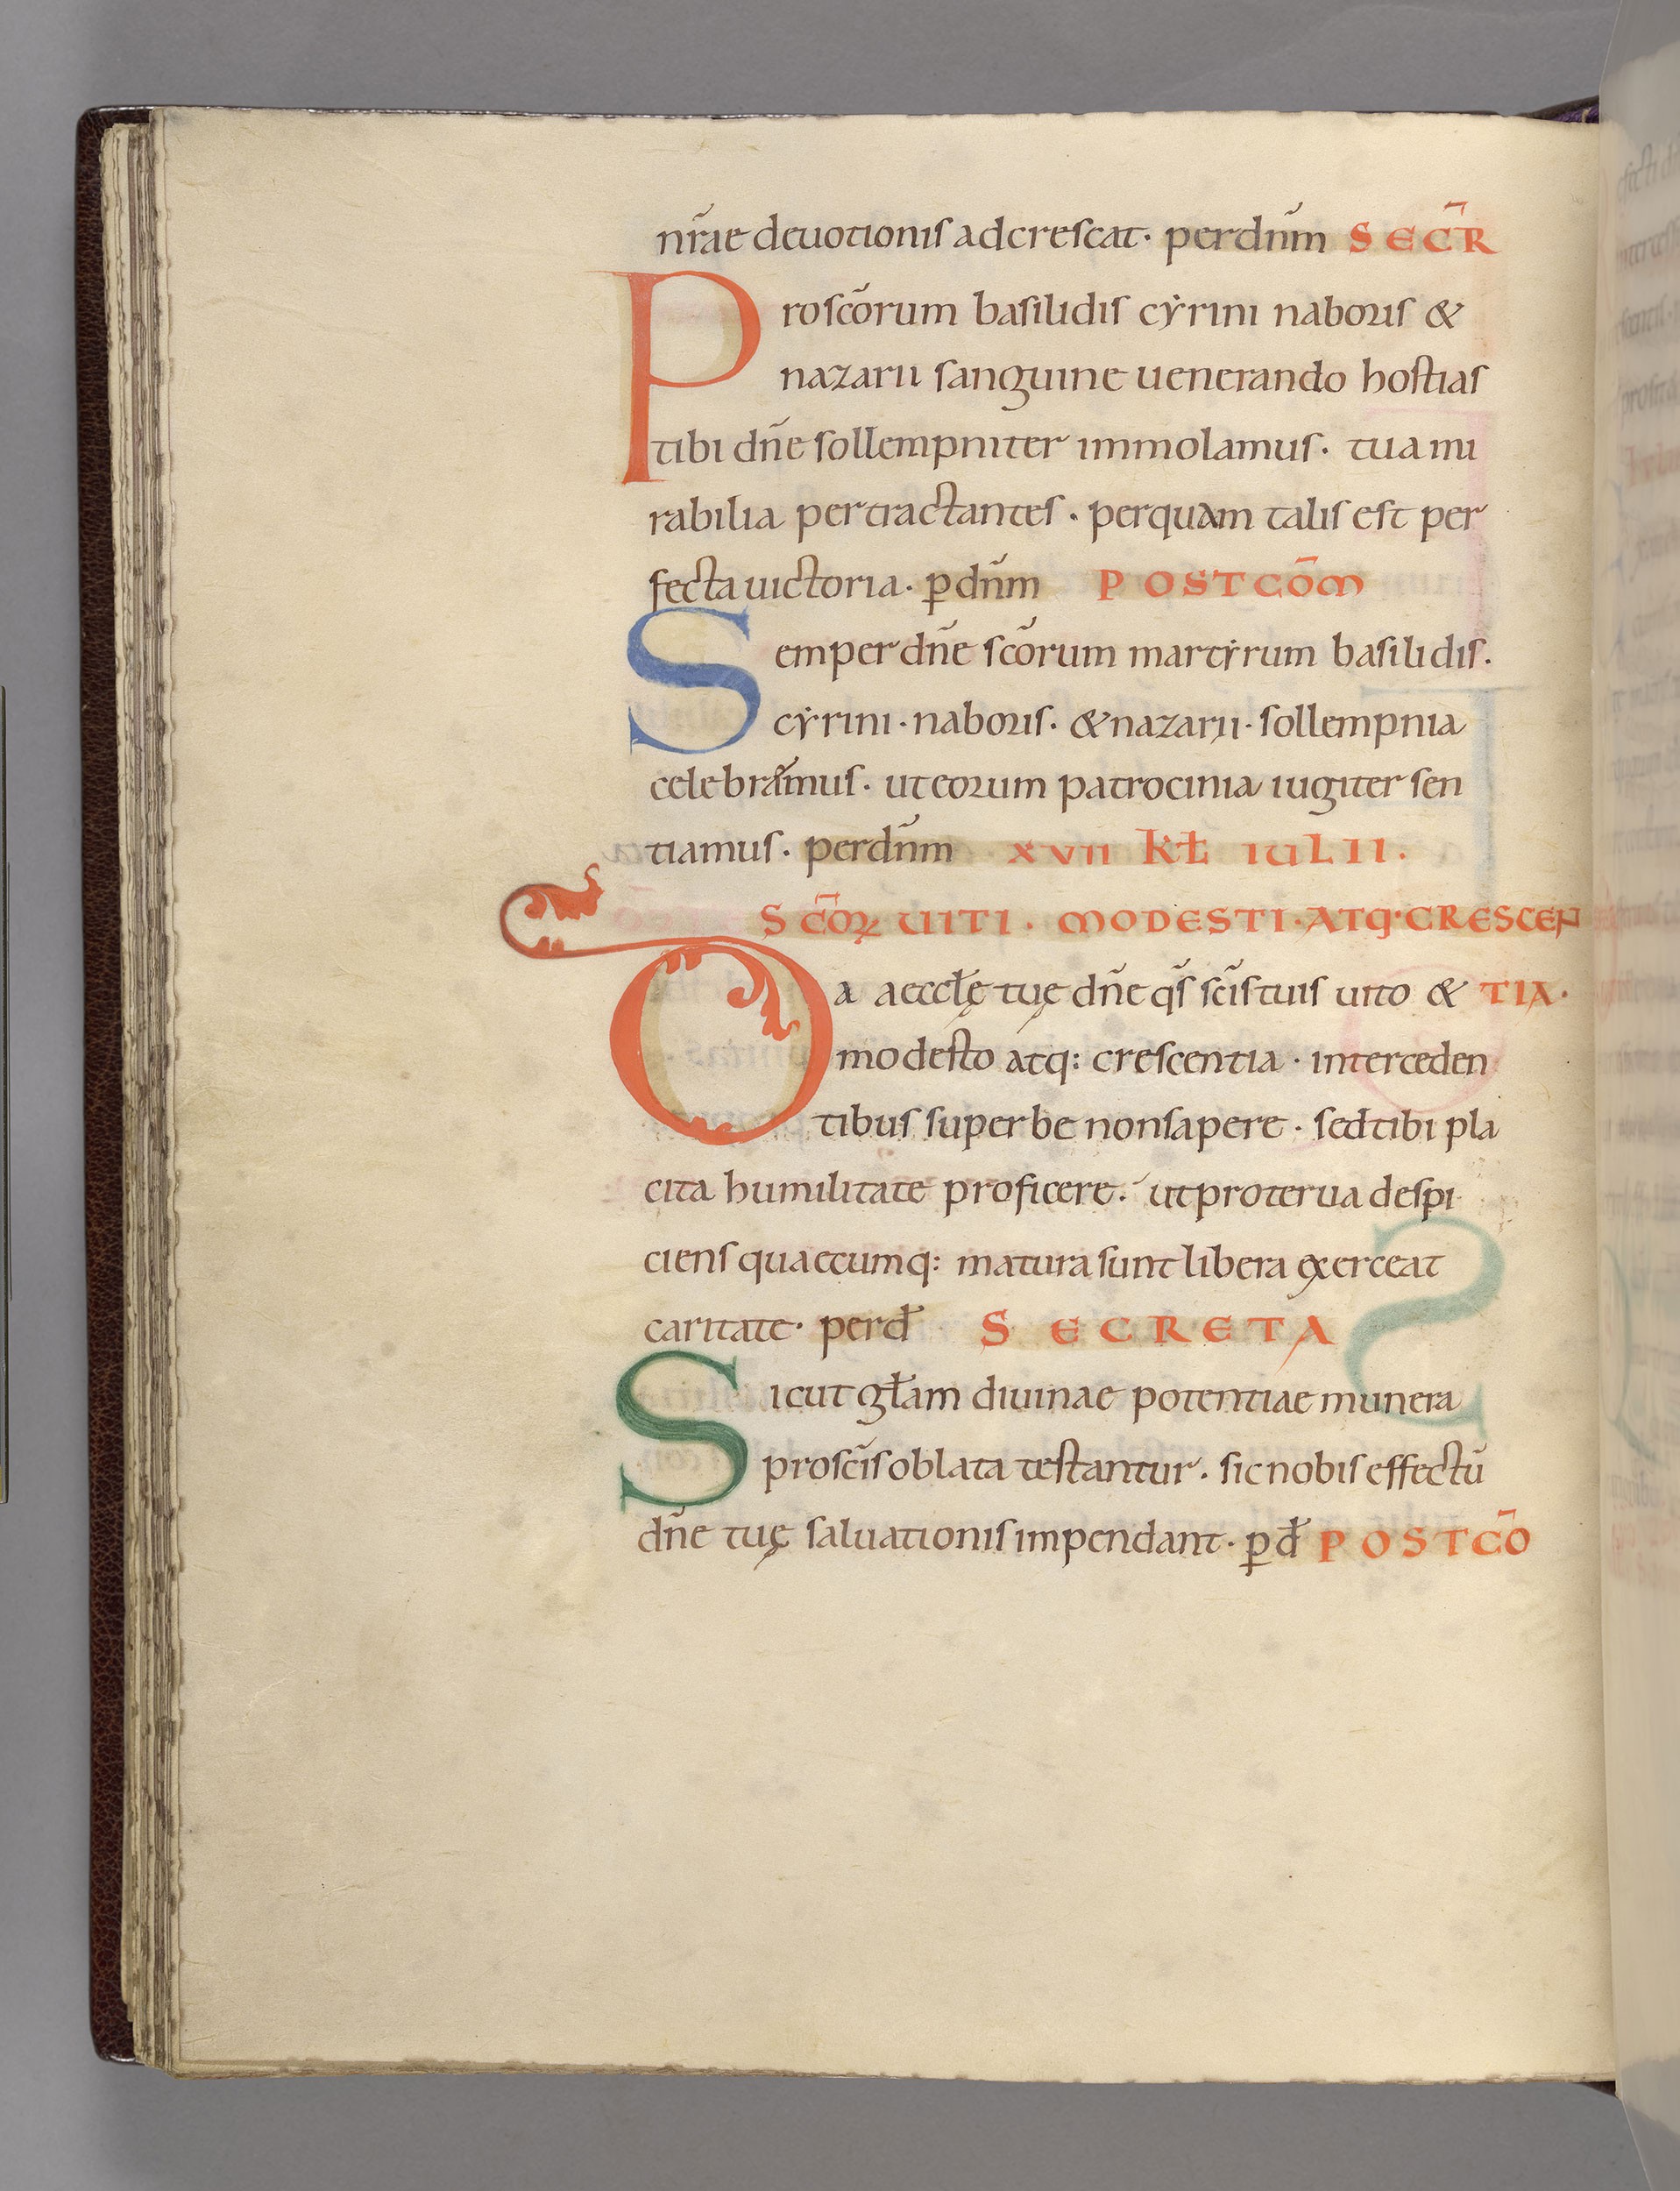 nr̄ae deuotionis adcrescat· perdn̄m SEC̄R
Prosc̄orum basilidis cẏrini naboris &
nazarii sanguine uenerando hostias
tibi dn̄e sollempniter immolamus· tua mi
rabilia pertractantes· perquam talis est per
fecta uictoria· p̱dn̄m POSTCOM̄
Semper dn̄e sc̄orum martẏrum basilidis·
cẏrini· naboris· & nazarii· sollempnia
celebram̄us· ut eorum patrocinia iugiter sen
tiamus· perdn̄m XVII KŁ IULII·
SC̄OꝜ UITI· MODESTI· ATQ· CRESCEN
Da aeccłę tuę dn̄e qs̄ sc̄is tuis uito & TIA·
modesto atq: crescentia· interceden
tibus superbe non sapere· sed tibi pla
cita humilitate proficere· ut proterua despi
ciens quaecumq: matura sunt libera exerceat
caritate· perđ SECRETA
Sicut głam diuinae potentiae munera
pro sc̄is oblata testantur· sic nobis effectū
dn̄e tuę saluationis impendant· ꝑđ POSTCŌ